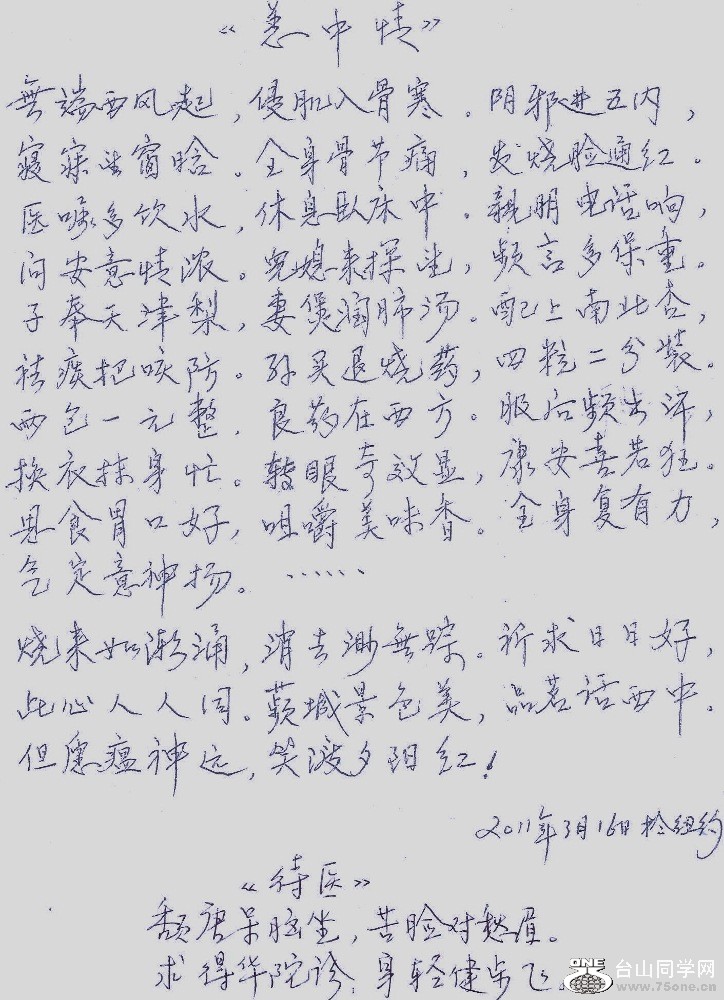 《恙中情》
無端西风起，侵肌入骨寒。阴邪进五内，
寝寐坐窗晗。全身骨节痛，发烧脸通红。
医嘱多饮水，休息臥床中。親朋电话响，
问安意情浓。児媳来探坐，频言多保重。
子奉天津梨，妻煲润肺汤。配上南北杏，
祛痰把咳防。孙买退烧药，四粒二分装。
两包一元整，良药在西方。服后频出汗，
换衣抹身忙。转眼奇效显，康安喜若狂。
思食胃口好，咀嚼美味香。全身复有力，
气定意神扬。……
烧来如潮涌，消去渺無踪。祈求日日好，
此心人人同。蘋城景色美，品茗话西中。
但愿瘟神远，笑渡夕阳红！
2011年3月16日於纽约
《待医》
颓唐呆脑坐，苦脸对愁眉。
求得华陀诊，身轻健步飞。
ONE
台山同学网
www.75one.cn